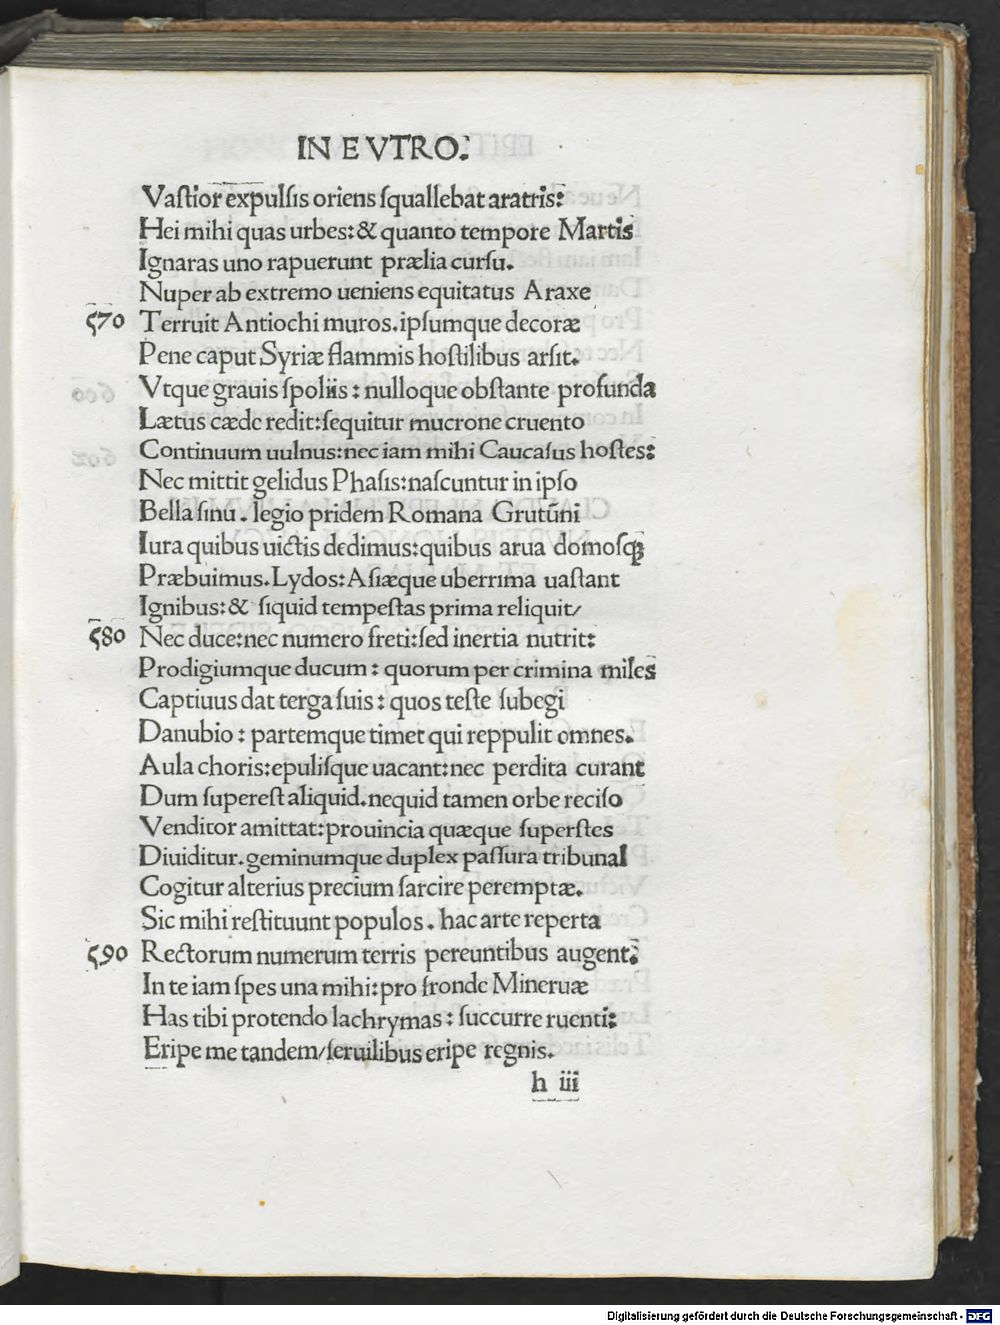 IN EVTRO.
Vaſtior expulſis oriens ſquallebat aratris:
Hei mihi quas urbes: & quanto tempore Martis
Ignaras uno rapuerunt prælia curſu.
Nuper ab extremo ueniens equitatus Araxe
570 Terruit Antiochi muros. ipſumque decoræ
Pene caput Syriæ flammis hoſtilibus arſit.
Vtque grauis ſpoliis: nulloque obſtante profunda
Lætus cæde redit: ſequitur mucrone cruento
Continuum uulnus: nec iam mihi Caucaſus hoſtes:
Nec mittit gelidus Phaſis: naſcuntur in ipſo
Bella ſinu. legio pridem Romana Grutūni
Iura quibus uictis dedimus: quibus arua domoſqꝫ
Præbuimus. Lydos: Aſiæque uberrima uaſtant
Ignibus: & ſiquid tempeſtas prima reliquit/
580 Nec duce: nec numero freti: ſed inertia nutrit:
Prodigiumque ducum: quorum per crimina miles
Captiuus dat terga ſuis: quos teſte ſubegi
Danubio: partemque timet qui reppulit omnes.
Aula choris: epuliſque uacant: nec perdita curant
Dum ſupereſt aliquid. nequid tamen orbe reciſo
Venditor amittat: prouincia quæque ſuperſtes
Diuiditur. geminumque duplex paſſura tribunal
Cogitur alterius precium ſarcire peremptæ.
Sic mihi reſtituunt populos. hac arte reperta
590 Rectorum numerum terris pereuntibus augent:
In te iam ſpes una mihi: pro fronde Mineruæ
Has tibi protendo lachrymas: ſuccurre ruenti:
Eripe me tandem/ſeruilibus eripe regnis.
h iii
Digitalisierung gefördert durch die Deutsche Forschungsgemeinschaft - DFG